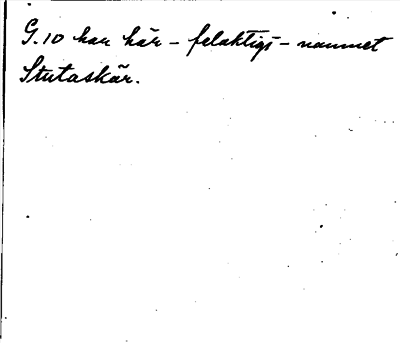 G.10 har här – felaktigt – namnet
Stutaskär.